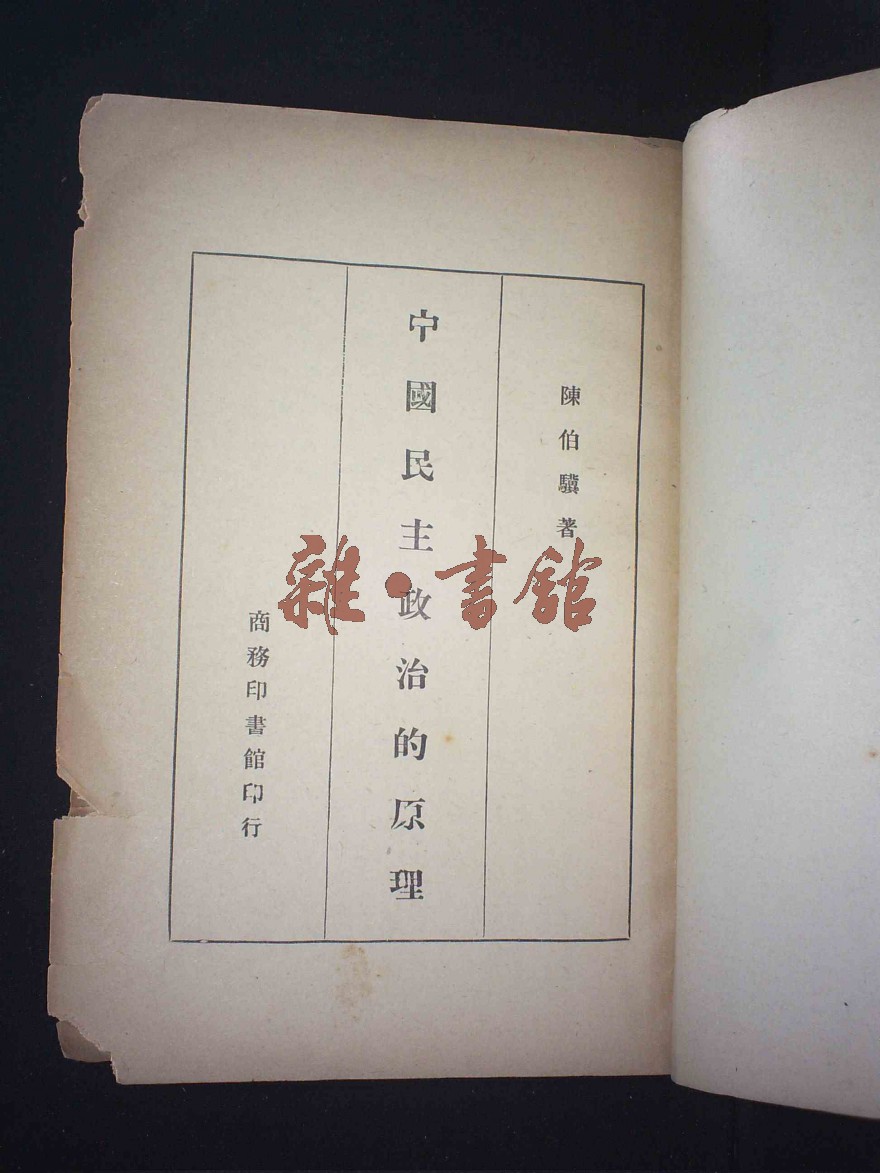 陳伯驥著
中國民主政治的原理
商務印書館印行
雜·書館